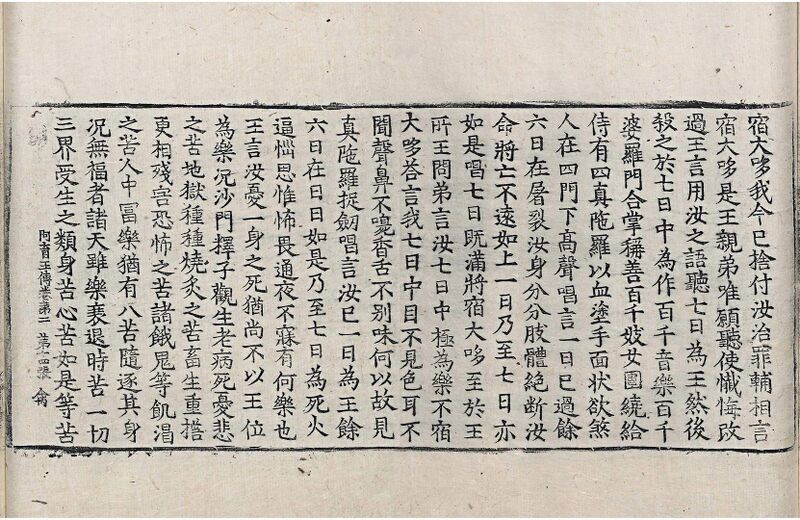 宿大哆我今已捨付汝治罪輔相言
宿大哆是王親弟唯願聽使懺悔改
過王言用汝之語聽七日為王然後
殺之於七日中為作百千音樂百千
婆羅門合掌稱善百千妓女圍繞給
侍有四真陁羅以血塗手面狀欲煞
人在四門下高聲唱言一日已過餘
六日在屠裂汝身分分肢體絕斷汝
命將亡不遠如上一日乃至七日亦
如是唱七日既滿將宿大哆至於王
所王問弟言汝七日中極為樂不宿
大哆荅言我七日中目不見色耳不
聞聲鼻不嗅香舌不別味何以故見
真陁羅捉劒唱言汝已一日為王餘
六日在日日如是乃至七日為死火
逼惱思惟怖畏通夜不寐有何樂也
王言汝憂一身之死猶尚不以王位
為樂況沙門釋子觀生老病死憂悲
之苦地獄種種燒炙之苦畜生重擔
更相殘害恐怖之苦諸餓鬼等飢渴
之苦人中冨樂猶有八苦隨逐其身
況無福者諸天雖樂衰退時苦一切
阿育王傳卷第二 第十四張 禽
三界受生之類身苦心苦如是等苦